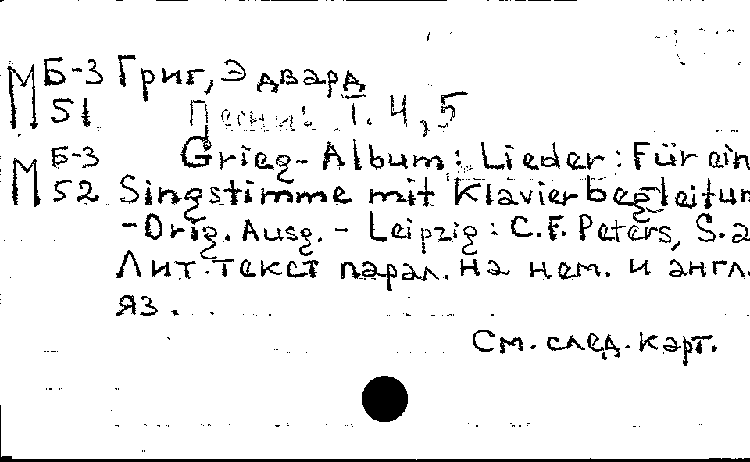 М Б-3 Григ, Эдвард
51 Песни. Т. 4, 5
М Б-3 Grieg-Album: Lieder: Für ein
52 Singstimme mit Klavierbegleitun
-Orig. Ausg. - Leipzig: C.F. Peters, S.a
Лит. текст парал. на нем. и англ.
яз.
См. след. карт.